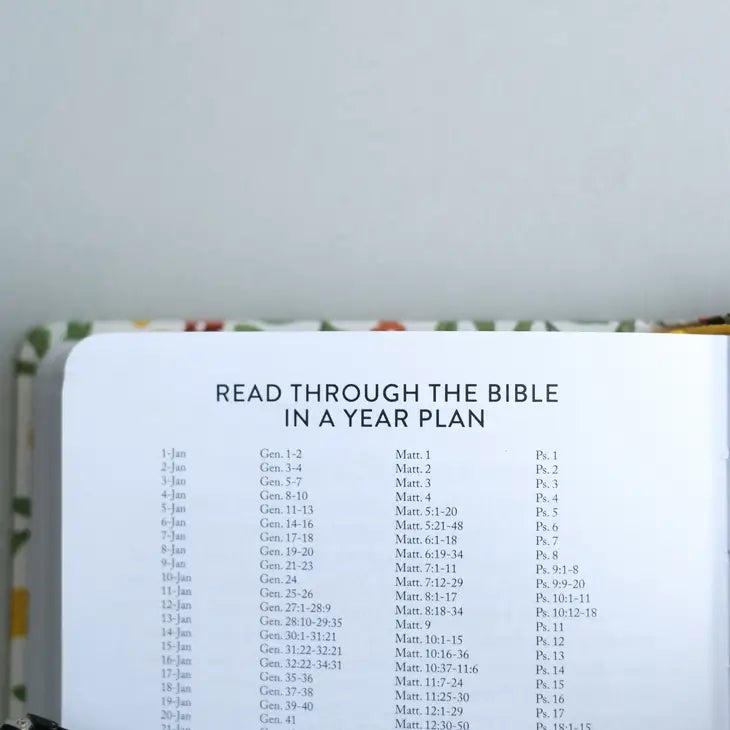 READ THROUGH THE BIBLE
IN A YEAR PLAN
1-Jan Gen. 1-2 Matt. 1 Ps. 1
2-Jan Gen. 3-4 Matt. 2 Ps. 2
3-Jan Gen. 5-7 Matt. 3 Ps. 3
4-Jan Gen. 8-10 Matt. 4 Ps. 4
5-Jan Gen. 11-13 Matt. 5:1-20 Ps. 5
6-Jan Gen. 14-16 Matt. 5:21-48 Ps. 6
7-Jan Gen. 17-18 Matt. 6:1-18 Ps. 7
8-Jan Gen. 19-20 Matt. 6:19-34 Ps. 8
9-Jan Gen. 21-23 Matt. 7:1-11 Ps. 9:1-8
10-Jan Gen. 24 Matt. 7:12-29 Ps. 9:9-20
11-Jan Gen. 25-26 Matt. 8:1-17 Ps. 10:1-11
12-Jan Gen. 27:1-28:9 Matt. 8:18-34 Ps. 10:12-18
13-Jan Gen. 28:10-29:35 Matt. 9 Ps. 11
14-Jan Gen. 30:1-31:21 Matt. 10:1-15 Ps. 12
15-Jan Gen. 31:22-32:21 Matt. 10:16-36 Ps. 13
16-Jan Gen. 32:22-34:31 Matt. 10:37-11:6 Ps. 14
17-Jan Gen. 35-36 Matt. 11:7-24 Ps. 15
18-Jan Gen. 37-38 Matt. 11:25-30 Ps. 16
19-Jan Gen. 39-40 Matt. 12:1-29 Ps. 17
20-Jan Gen. 41 Matt. 12:30-50 Ps. 18:1-15